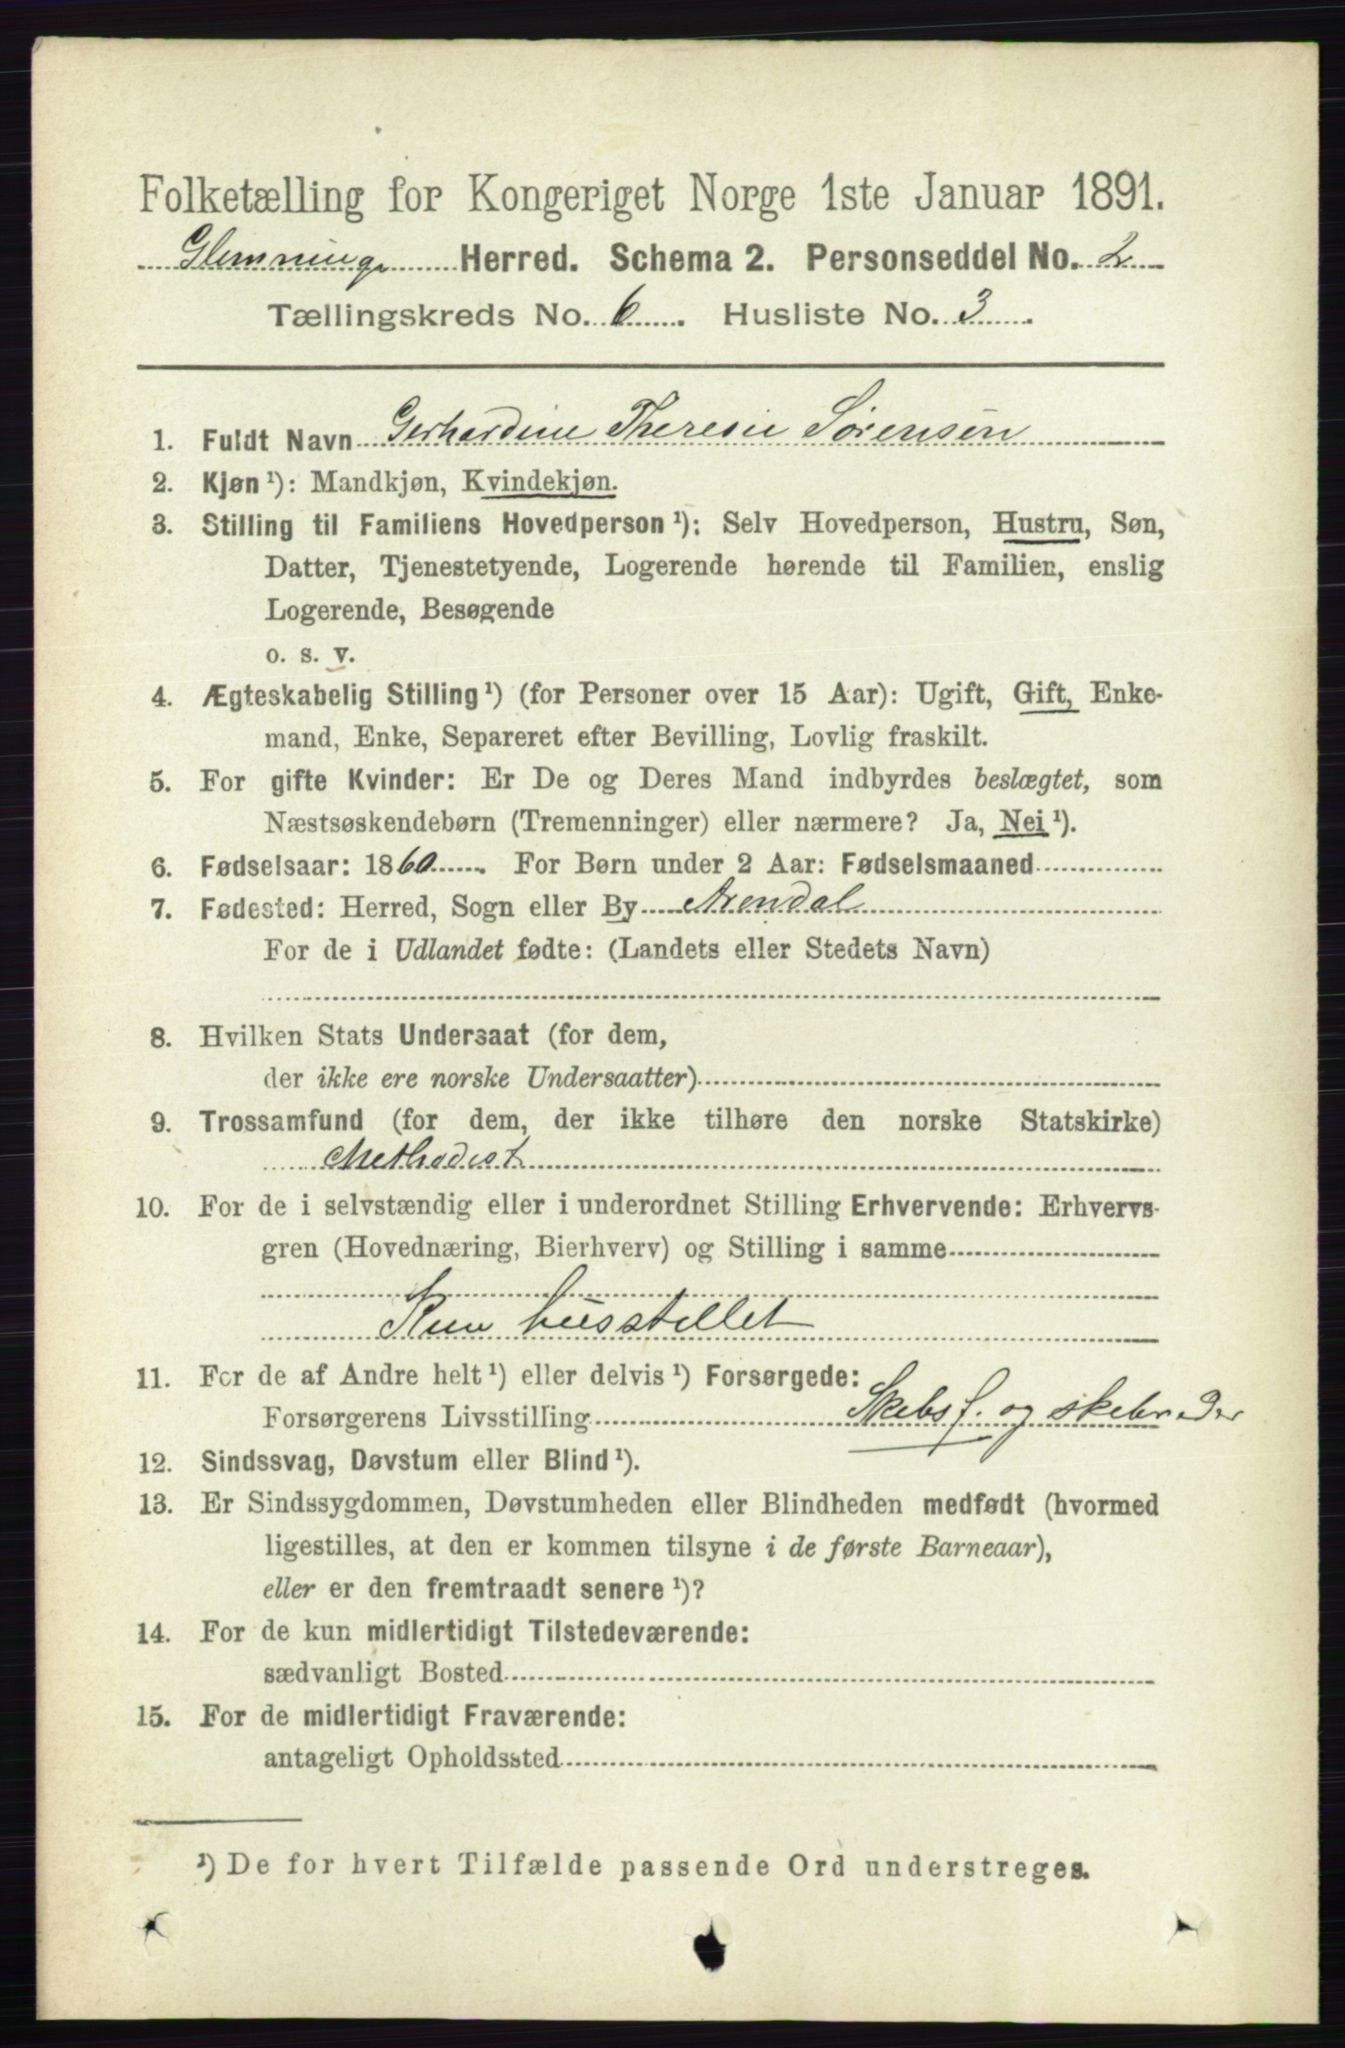 Folketælling for Kongeriget Norge 1ste Januar 1891.
Glemminge Herred. Schema 2. Personseddel No. 2
Tællingskreds No. 6. Husliste No. 3.
1. Fuldt Navn Gerhardine Theresie Sørensen
2. Kjøn¹): Mandkjøn, Kvindekjøn.
3. Stilling til Familiens Hovedperson¹): Selv Hovedperson, Hustru, Søn,
Datter, Tjenestetyende, Logerende hørende til Familien, enslig
Logerende, Besøgende
o. s. v.
4. Ægteskabelig Stilling¹) (for Personer over 15 Aar): Ugift, Gift, Enke-
mand, Enke, Separeret efter Bevilling, Lovlig fraskilt.
5. For gifte Kvinder: Er De og Deres Mand indbyrdes beslægtet, som
Næstsøskendebørn (Tremenninger) eller nærmere? Ja, Nei¹).
6. Fødselsaar: 1860. For Børn under 2 Aar: Fødselsmaaned
7. Fødested: Herred, Sogn eller By Arendal
For de i Udlandet fødte: (Landets eller Stedets Navn)
8. Hvilken Stats Undersaat (for dem,
der ikke ere norske Undersaatter)
9. Trossamfund (for dem, der ikke tilhøre den norske Statskirke)
Methodist
10. For de i selvstændig eller i underordnet Stilling Erhvervende: Erhvervs-
gren (Hovednæring, Bierhverv) og Stilling i samme
Kun husstellet
11. For de af Andre helt¹) eller delvis¹) Forsørgede:
Forsørgerens Livsstilling Skebsf. og skebreder
12. Sindssvag, Døvstum eller Blind¹).
13. Er Sindssygdommen, Døvstumheden eller Blindheden medfødt (hvormed
ligestilles, at den er kommen tilsyne i de første Barneaar),
eller er den fremtraadt senere¹)?
14. For de kun midlertidigt Tilstedeværende:
sædvanligt Bosted
15. For de midlertidigt Fraværende:
antageligt Opholdssted
¹) De for hvert Tilfælde passende Ord understreges.